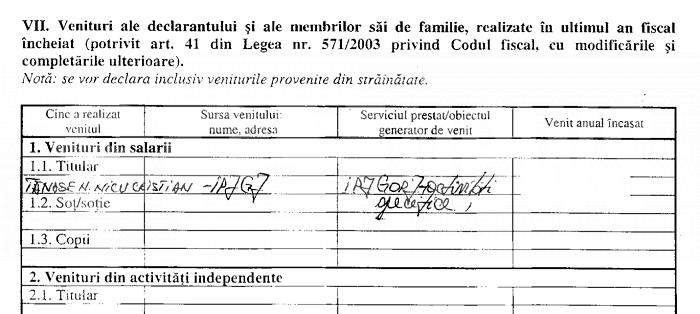 VII. Venituri ale declarantului şi ale membrilor săi de familie, realizate în ultimul an fiscal
încheiat (potrivit art. 41 din Legea nr. 571/2003 privind Codul fiscal, cu modificările şi
completările ulterioare).
Notă: se vor declara inclusiv veniturile provenite din străinătate.
Cine a realizat venitul
Sursa venitului: nume, adresa
Serviciul prestat/obiectul generator de venit
Venit anual încasat
1. Venituri din salarii
1.1. Titular
TĂNASE N. NICU CRISTIAN - IPJ GJ
IPJ GORJ activități
specifice
1.2. Soţ/soţie
1.3. Copii
2. Venituri din activităţi independente
2.1. Titular